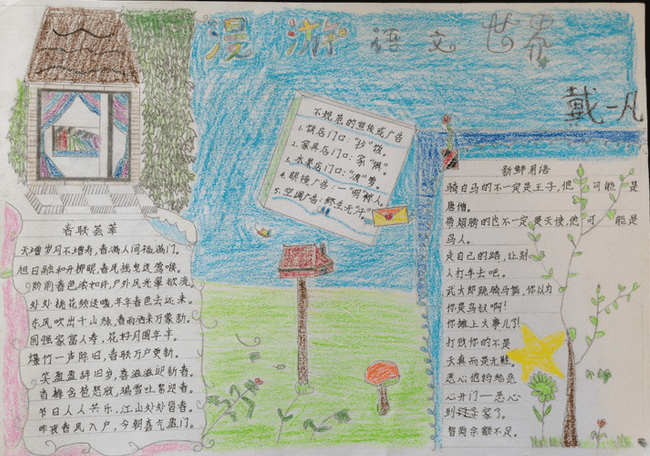 漫游语文世界
戴一凡
不规范的宣传或广告
1.饭店门口："抄"饭。
2.家具店门口：家"俱"。
3.水果店门口："波"萝。
4.眼镜广告：一"明"惊人。
5.空调广告：终生无"汗"
春联荟萃
天增岁月人增寿，春满人间福满门。
旭日融和开柳眼，春风拂煦送莺喉。
阶前春色浓如许，户外风光翠欲流。
处处桃花频送暖，年年春色去还来。
东风吹出千山绿，春雨洒来万象新。
国强家富人寿，花好月圆年丰。
爆竹一声除旧，春联万户更新。
笑盈盈辞旧岁，喜滋滋迎新春。
春梅含苞怒放，瑞雪吐絮迎春。
节日人人共乐，江山处处留春。
昨夜春风入户，今朝喜气盈门。
新鲜用语
骑白马的不一定是王子，他可能是
唐僧。
带翅膀的也不一定是天使，他可能是
鸟人。
走自己的路，让别
人打车去吧。
武大郎跳骑马舞，你以为
你是鸟叔啊！
你摊上大事儿了！
打败你的不是
天真而是无鞋。
恶心他妈给恶
心开门——恶心
到家了。
智商余额不足。